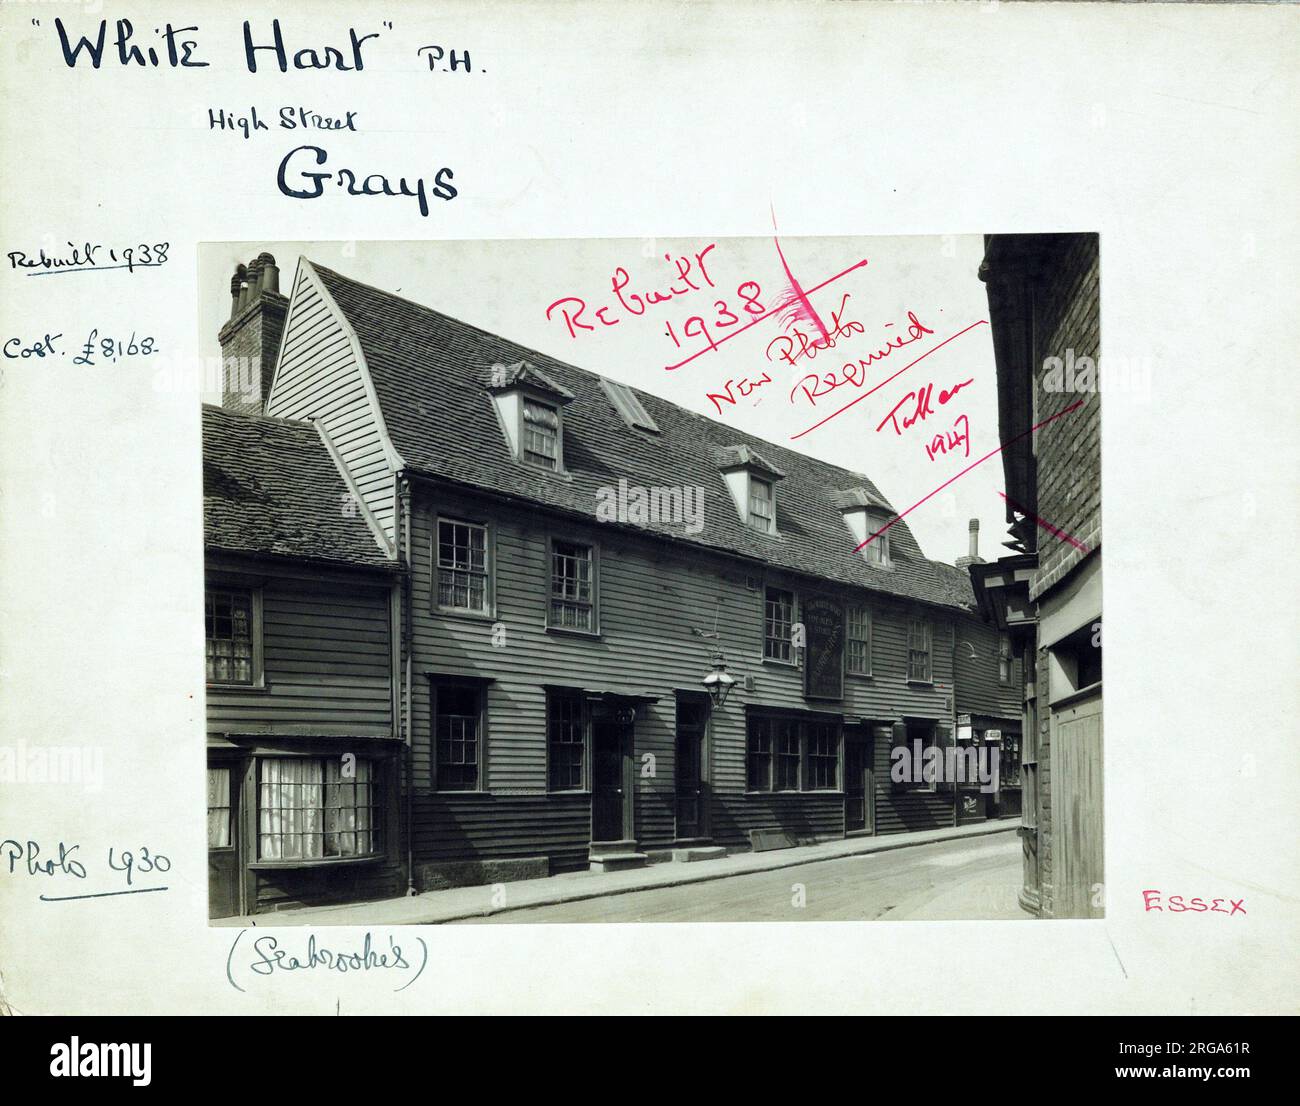 "White Hart" P.H.
High Street
Grays
Rebuilt 1938
Cost. £8,168-
Rebuilt
1938
New Photo
Required.
Taken
1947
Photo 1930
(Seabrooke's)
ESSEX
alamy
alamy
alamy
alamy
alamy
Image ID: 2RGA61R
www.alamy.com